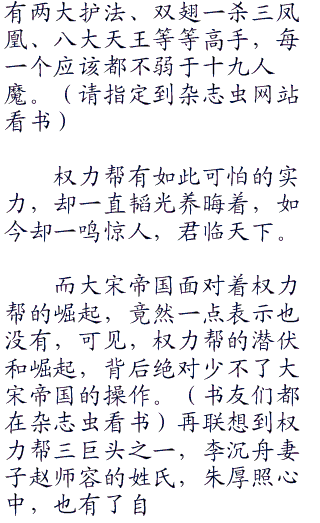 有两大护法、双翅一杀三凤
凰、八大天王等等高手，每
一个应该都不弱于十九人
魔。（请指定到杂志虫网站
看书）
权力帮有如此可怕的实
力，却一直韬光养晦着，如
今却一鸣惊人，君临天下。
而大宋帝国面对着权力
帮的崛起，竟然一点表示也
没有，可见，权力帮的潜伏
和崛起，背后绝对少不了大
宋帝国的操作。（书友们都
在杂志虫看书）再联想到权
力帮三巨头之一，李沉舟妻
子赵师容的姓氏，朱厚照心
中，也有了自